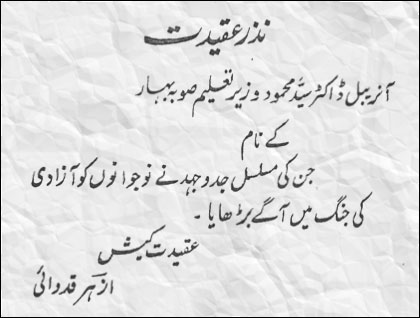 نذر عقیدت
آنریبل ڈاکٹر سیّد محمود وزیر تعلیم صوبہ بہار
کے نام
جن کی مسلسل جدوجہد نے نوجوانوں کو آزادی
کی جنگ میں آگے بڑھایا۔
عقیدت کیش
ازہر قدوائی